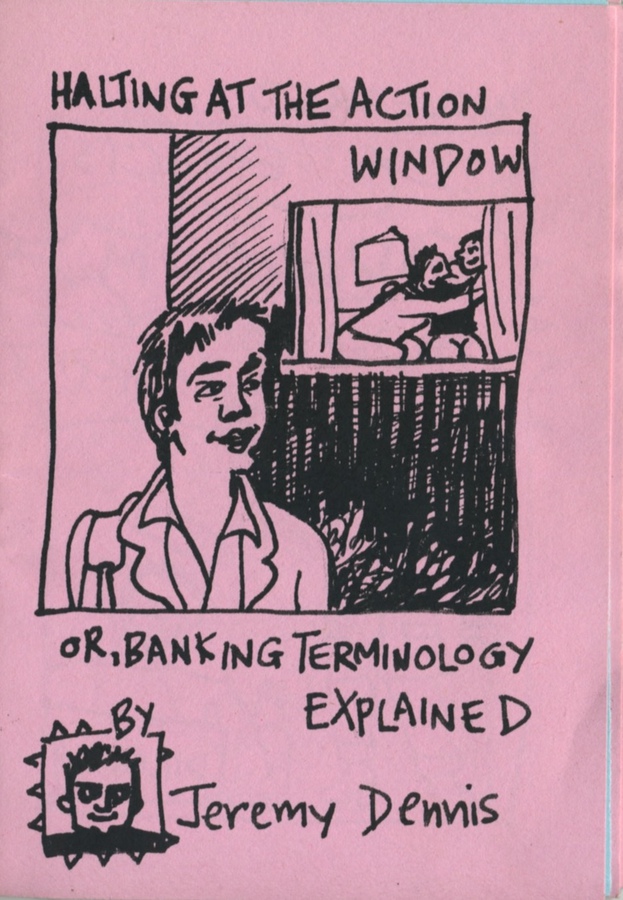 HALTING AT THE ACTION
WINDOW
OR, BANKING TERMINOLOGY
EXPLAINED
BY
Jeremy Dennis